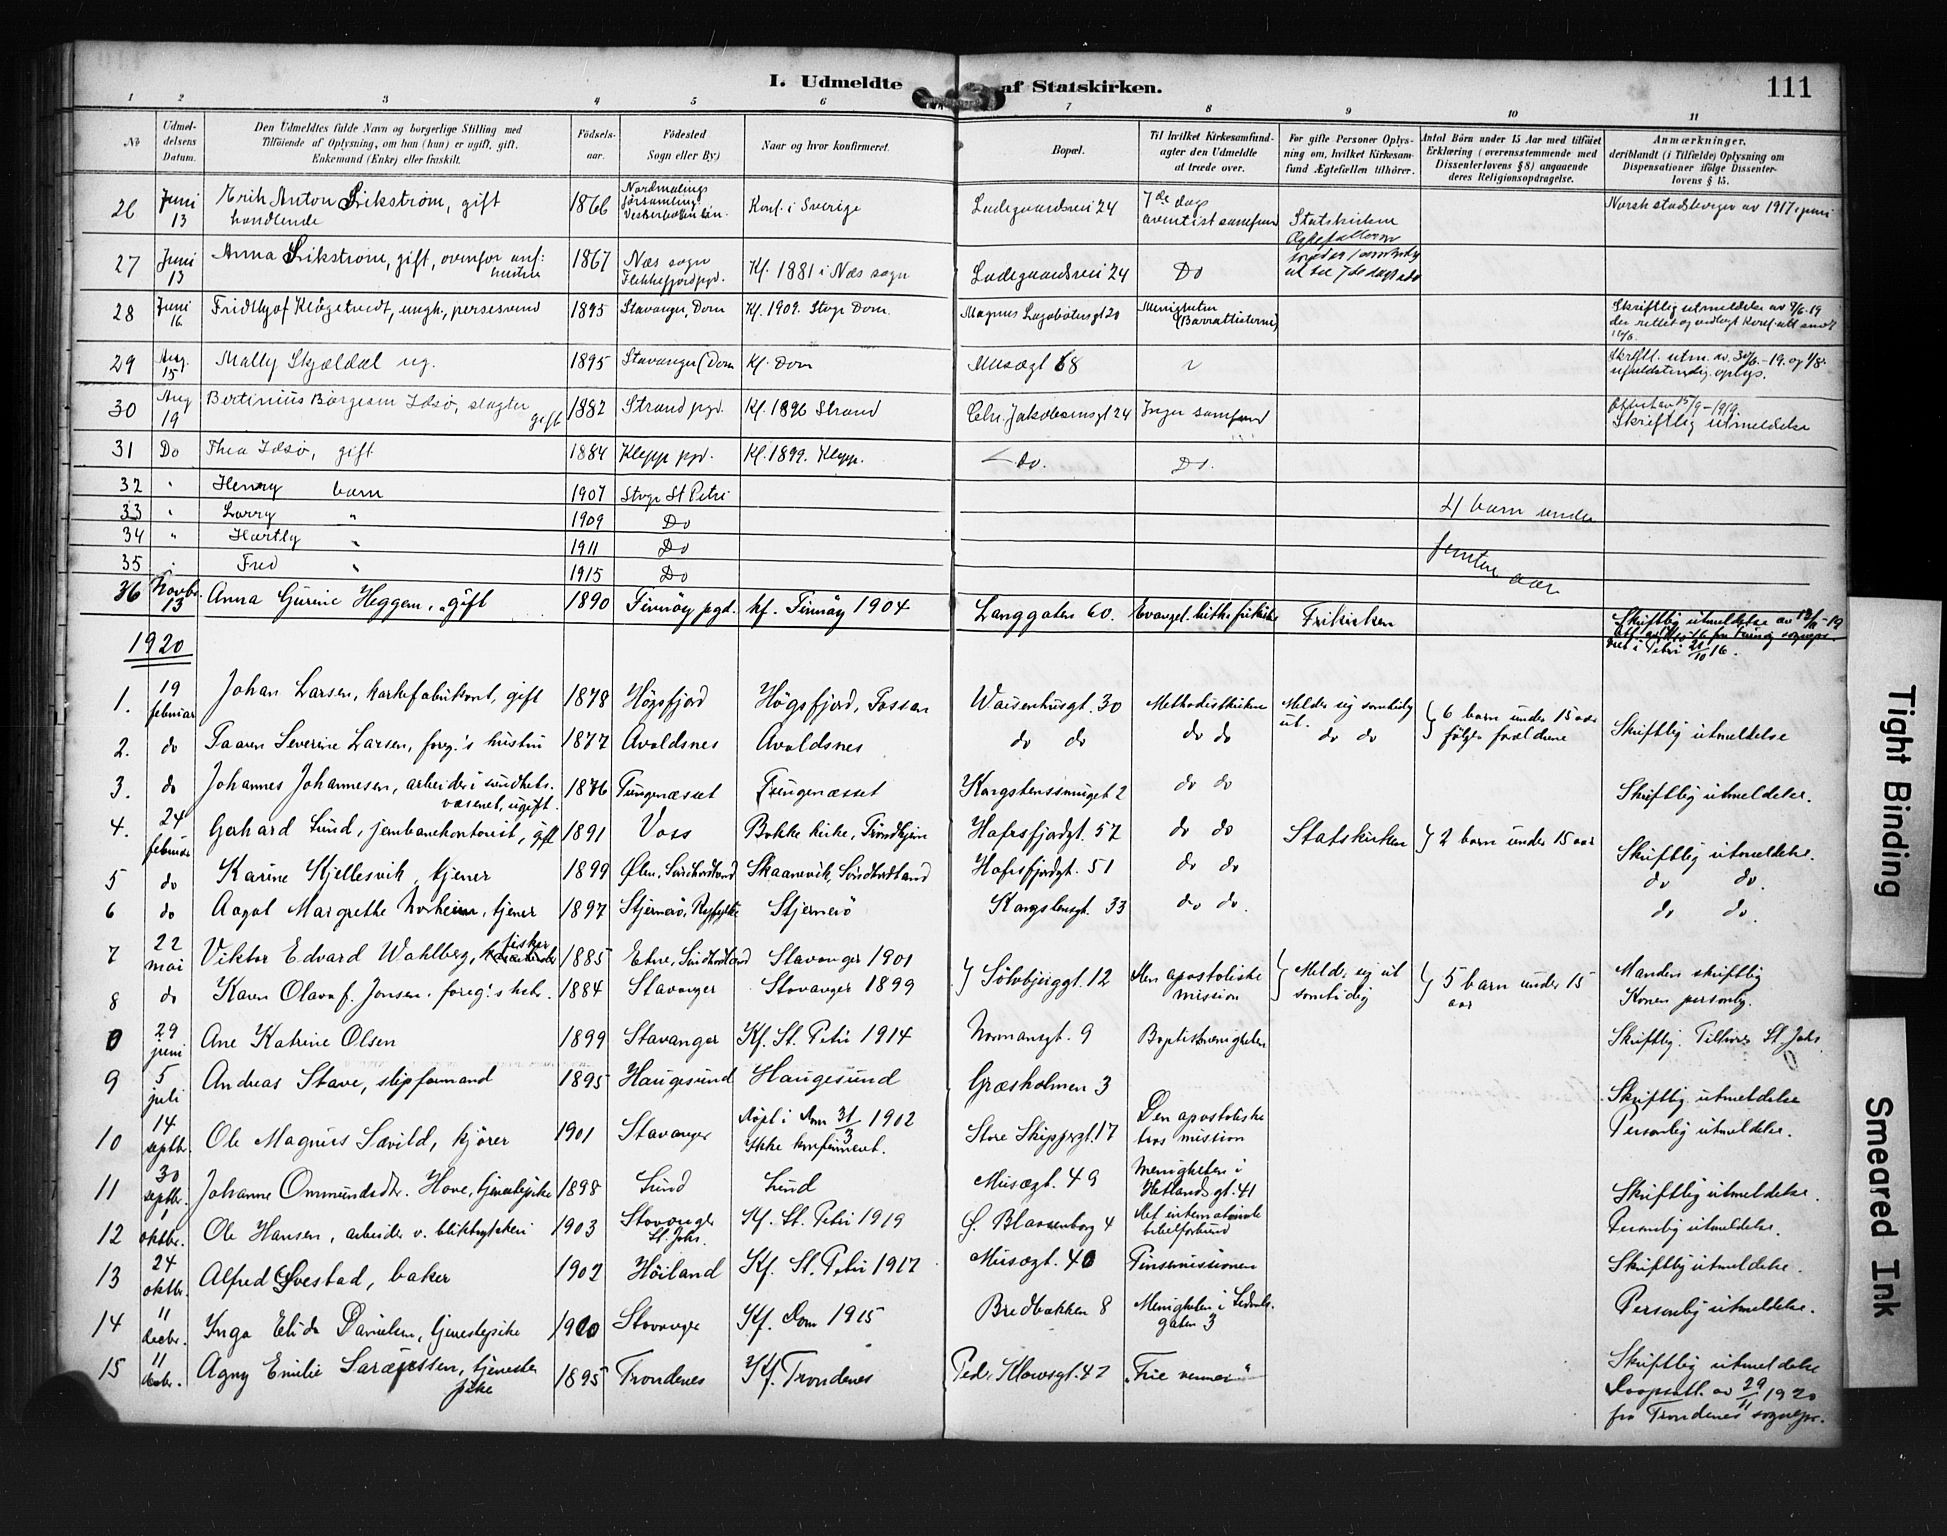 I. Udmeldte af Statskirken.
111
1 2 3 4 5 6 7 8 9 10 11
No
Udmel-
delsens
Datum.
Den Udmeldtes fulde Navn og borgerlige Stilling med
Tilføiende af Oplysning, om han (hun) er ugift, gift,
Enkemand (Enke) eller fraskilt.
Fødsels-
aar.
Fødested
Sogn eller By)
Naar og hvor konfirmeret.
Bopæl.
Til hvilket Kirkesamfund-
agter den Udmeldte
at træde over.
For gifte Personer Oplys-
ning om, hvilket Kirkesam-
fund Ægtefællen tilhører.
Antal Börn under 15 Aar med tilföiet
Erklæring (overensstemmende med
Dissenterlovens § 8) angaaende
deres Religionsopdragelse.
Anmærkninger,
deriblandt (i Tilfælde) Oplysning om
Dispensationer ifölge Dissenter-
lovens § 15.
26 Juni 13 Erik Anton Erikstrom, gift handlende 1866 Nordmalings församling Konf. i Sverige Ladegaardsveii 24 7de dag adventist samfund Statskirken Norsk statsborger av 1917
27 Juni 13 Anna Erikstrom, gift, ovenfor anf: hustru 1867 Næs sogn Flekkefjord pgd. Kf. 1881 i Næs sogn Ladegaardsveii 24 Do
28 Juni 16 Fridthjof Kløgetvedt, ungk., persesvend 1895 Stavanger, Dom Kf. 1909. Stvgr Dom. Magnus Lagabøtersgt 20 Menigheten (Barrattisterne) Skriftlig utmeldelse av 9/6-19
29 Aug. 15 Mally Skjældal ug. 1895 Stavanger (Dom Kf. Dom Musægt 68 Skriftl. utm. av 30/6-19. og 1/8. ufuldstændig oplys.
30 Aug 19 Bertinius Børgesen Idsø, slagter gift 1882 Strand pgd. Kf. 1896 Strand Chr. Jakobsensgt 24 Ingen samfund Attest av 15/9-1919 Skriftlig utmeldelse
31 Do Thea Idsø, gift 1884 Klepp pgd. Kf. 1899. Klepp. do. Do.
32 " Henry barn 1907 Stvgr St Petri
33 " Larry " 1909 Do 4 barn under
34 " Hartly " 1911 Do femten
35 " Fred " 1915 Do aar
36 Novbr. 13 Anna Gurine Heggem, gift 1890 Finnøy pgd. kf. Finnøy 1904 Langgaten 60. Evangel. luthe frikirke Frikirken Skriftlig utmeldelse av 12/11-19
1920
1. 19 februar Johan Larsen, kartefabrikant, gift 1878 Høgsfjord Høgsfjord, Fossan Waisenhusgt. 30 Methodistkirken Melder sig samtidig ut. } 6 barn under 15 aar følge forældrene Skriftlig utmeldelse
2. do Severine Larsen, foreg.'s hustru 1877 Avaldsnes Avaldsnes do do do do do do
3. do Johannes Johannesen, arbeider i sundhets- væsenet, ugift. 1876 Tungenæsset Tungenæsset Kongstenssmuget 2 do do Skriftlig utmeldelse.
4. 24 februar Gerhard Lund, jernbanekontorist, gift 1891 Voss Bakke kirke, Trondhjem Hafrsfjordgt. 57 do do Statskirken } 2 barn under 15 aar Skriftlig utmeldelse.
5 do Karine Kjellesvik, tjener 1899 Ølen, Sundhordland Skaanevik, Sundhordland Hafrsfjordgt. 51 do do do do.
6 do Aagot Margrethe Norheim, tjener 1897 Stjernerö, Ryfylke Stjernerö Kongstensgt. 33 do do. do do.
7 22 mai Viktor Edvard Wahlberg, fisker 1885 Etne, Sundhordland Stavanger 1901 } Sølvbjerggt. 12 Den apostoliske mission } Melder sig ut samtidig } 5 barn under 15 aar Manden skriftlig
8 do Karen Olava f. Jonsen. foreg.'s hstr. 1884 Stavanger Stavanger 1899 Konen personlig.
0 29 juni Ane Katrine Olsen 1899 Stavanger Kf. St. Petri 1914 Normansgt. 9 Baptistmenigheten Skriftlig. Tilhører St. Johs.
9 5 juli Andreas Stave, slipformand 1895 Haugesund Haugesund Græsholmen 3 Skriftlig utmeldelse
10 14 septbr. Ole Magnus Sævild, kjører 1901 Stavanger Døpt i Dom 31/3 1902 Ikke konfirmeret. Store Skippergt. 17 Den apostoliske tros mission Personlig utmeldelse.
11 30 septbr. Johanne Ommundsdtr. Hove, tjenestepike 1898 Lund Lund Musægt. 49 Menigheten i Hetlandsgt. 41 Skriftlig utmeldelse.
12 1 oktbr. Ole Hansen, arbeider v. bliktrykkeri 1903 Stavanger St. Johs. Kf. St. Petri 1919 Ø. Blaasenborg 4 Det internationale bibelforbund Personlig utmeldelse.
13 24 oktbr. Alfred Svestad, baker 1902 Høiland Kf. St. Petri 1917 Musægt. 40 Pinsemissionen Skriftlig utmeldelse.
14 11 decbr. Inga Elida Danielsen, tjenestepike 1900 Stavanger Kf. Dom 1915 Bredbakken 8 Menigheten i gaten 3 Personlig utmeldelse.
15 11 decbr. Agny Emilie tjeneste pike 1895 Trondenes Kf. Trondenes Ped. Klowsgt. 47 "Frie venner" Skriftlig utmeldelse
Daapsatt. av 29/11 1920
fra Trondenes sognepr.
Tight Binding
Smeared Ink